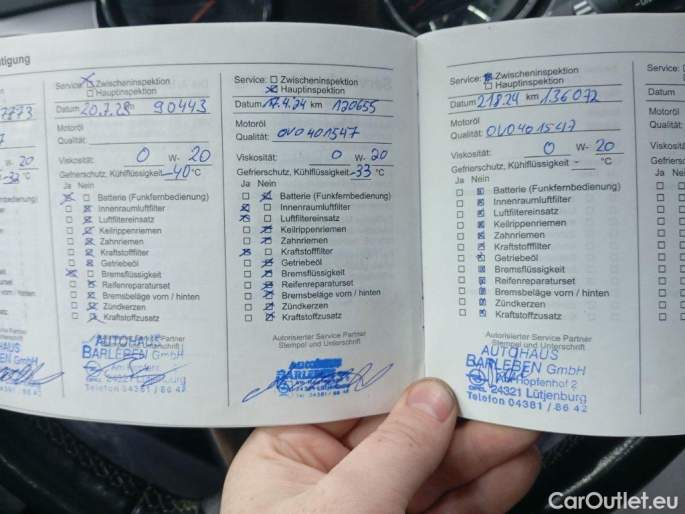 tigung
7773
W- 20
-32 °C
HAUS
EBEN GmbH
Service: Zwischeninspektion
Hauptinspektion
Datum 20.7.23 90443
Motoröl
Qualität:
Viskosität: 0 W- 20
Gefrierschutz, Kühlflüssigkeit -40 °C
Ja Nein
Batterie (Funkfernbedienung)
Innenraumluftfilter
Luftfiltereinsatz
Keilrippenriemen
Zahnriemen
Kraftstofffilter
Getriebeöl
Bremsflüssigkeit
Reifenreparaturset
Bremsbeläge vorn / hinten
Zündkerzen
Kraftstoffzusatz
Autorisierter Service Partner
Stempel und Unterschrift
AUTOHAUS
BARLEBEN GmbH
24321 Lütjenburg
Telefon 04381 / 86 42
Service: Zwischeninspektion
Hauptinspektion
Datum 17.4.24 km 120655
Motoröl
Qualität: OVO401547
Viskosität: 0 W- 20
Gefrierschutz, Kühlflüssigkeit -33 °C
Ja Nein
Batterie (Funkfernbedienung)
Innenraumluftfilter
Luftfiltereinsatz
Keilrippenriemen
Zahnriemen
Kraftstofffilter
Getriebeöl
Bremsflüssigkeit
Reifenreparaturset
Bremsbeläge vorn / hinten
Zündkerzen
Kraftstoffzusatz
Autorisierter Service Partner
Stempel und Unterschrift
AUTOHAUS
BARLEBEN
04381 / 86 42
Service: Zwischeninspektion
Hauptinspektion
Datum 21.8.24 km 136072
Motoröl
Qualität: OVO401547
Viskosität: 0 W- 20
Gefrierschutz, Kühlflüssigkeit - °C
Ja Nein
Batterie (Funkfernbedienung)
Innenraumluftfilter
Luftfiltereinsatz
Keilrippenriemen
Zahnriemen
Kraftstofffilter
Getriebeöl
Bremsflüssigkeit
Reifenreparaturset
Bremsbeläge vorn / hinten
Zündkerzen
Kraftstoffzusatz
Autorisierter Service Partner
Stempel und Unterschrift
AUTOHAUS
BARLEBEN GmbH
Am Hopfenhof 2
24321 Lütjenburg
Telefon 04381 / 86 42
OPEL
Service:
Datum
Motoröl
Qualität:
Viskosität:
Gefriersc
Ja Nein
CarOutlet.eu